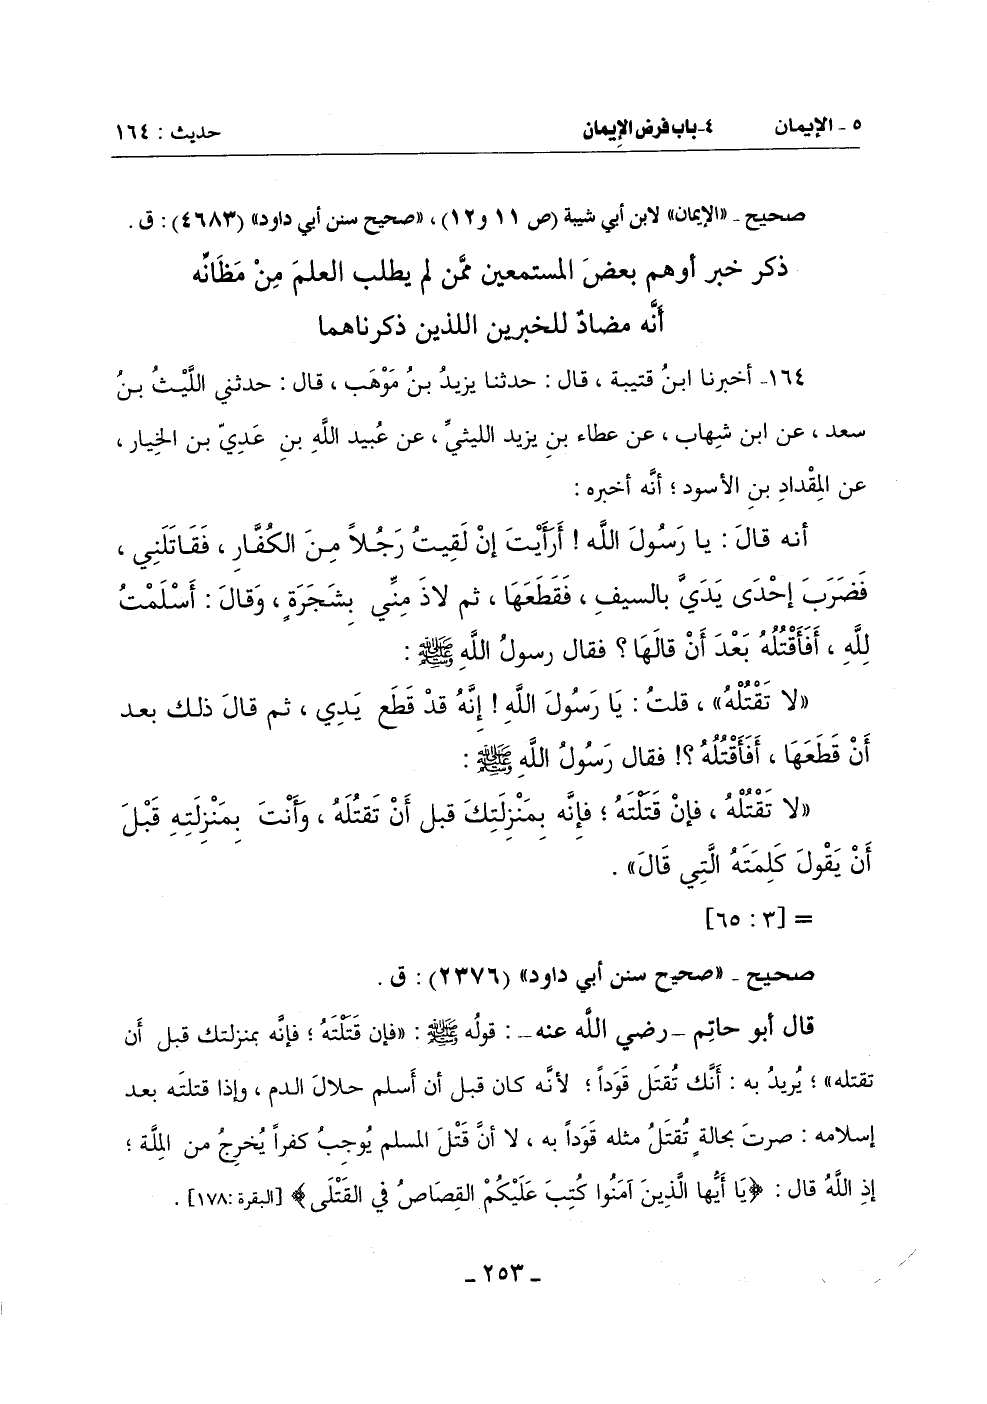 ٥ ـ الإيمان ٤ـ باب فرض الإيمان حديث : ١٦٤
صحيح ـ «الإيمان» لابن أبي شيبة (ص ١١ و١٢) ، «صحيح سنن أبي داود» (٤٦٨٣) : ق .
ذكر خبر أوهم بعضَ المستمعين ممَّن لم يطلب العلمَ مِنْ مَظَانِّه
أنَّه مضادٌ للخبرين اللذين ذكرناهما
١٦٤ـ أخبرنا ابنُ قتيبة ، قال : حدثنا يزيدُ بنُ مَوْهَب ، قال : حدثني اللَّيْثُ بنُ
سعد ، عن ابن شِهاب ، عن عطاء بنِ يزيد الليثيِّ ، عن عُبيد اللَّهِ بنِ عَديّ بن الخِيار ،
عن المِقْدادِ بنِ الأسود ؛ أنَّه أخبره :
أنه قالَ : يا رَسُولَ اللَّه ! أَرَأَيْتَ إنْ لَقِيتُ رَجُلاً مِنَ الكُفَّارِ ، فَقَاتَلَنِي ،
فَضَرَبَ إحْدَى يَدَيَّ بالسيفِ ، فَقَطَعَهَا ، ثم لاذَ مِنِّي بِشَجَرَةٍ ، وَقالَ : أَسْلَمْتُ
لِلَّهِ ، أَفَأَقْتُلُهُ بَعْدَ أَنْ قالَهَا ؟ فقال رسولُ اللَّهِ ﷺ :
«لا تَقْتُلْهُ» ، قلتُ : يَا رَسُولَ اللَّهِ ! إنَّهُ قدْ قَطَع يَدِي ، ثم قالَ ذلك بعد
أَنْ قَطَعَهَا ، أَفَأَقْتُلُهُ ؟! فقال رَسُولُ اللَّهِ ﷺ :
«لا تَقْتُلْهُ ، فإنْ قَتَلْتَهُ ؛ فإنَّه بِمَنْزِلَتِكَ قبل أَنْ تَقتُلَهُ ، وَأَنْتَ بِمَنْزِلَتِهِ قَبْلَ
أَنْ يَقْولَ كَلِمَتَهُ الَّتِي قَالَ» .
= [٣ : ٦٥]
صحيح ـ «صحيح سنن أبي داود» (٢٣٧٦) : ق .
قال أبو حاتِم ـ رضي اللَّه عنه ـ : قولُه ﷺ : «فإن قَتَلْتَهُ ؛ فإنَّه بمنزلتك قبل أن
تقتله» ؛ يُريدُ به : أنَّك تُقتَل قَوَداً ؛ لأنَّه كان قبل أن أَسلم حلالَ الدم ، وإذا قتلتَه بعد
إسلامه : صرتَ بحالةٍ تُقتَلُ مثله قَوَداً به ، لا أنَّ قَتْلَ المسلم يُوجِبُ كفراً يُخرِجُ من المِلَّة ؛
إذِ اللَّهُ قال : ﴿يَا أَيُّها الَّذِينَ آمَنُوا كُتِبَ عَلَيْكُمْ القِصَاصُ في القَتْلَى﴾ [البقرة :١٧٨] .
ـ ٢٥٣ ـ